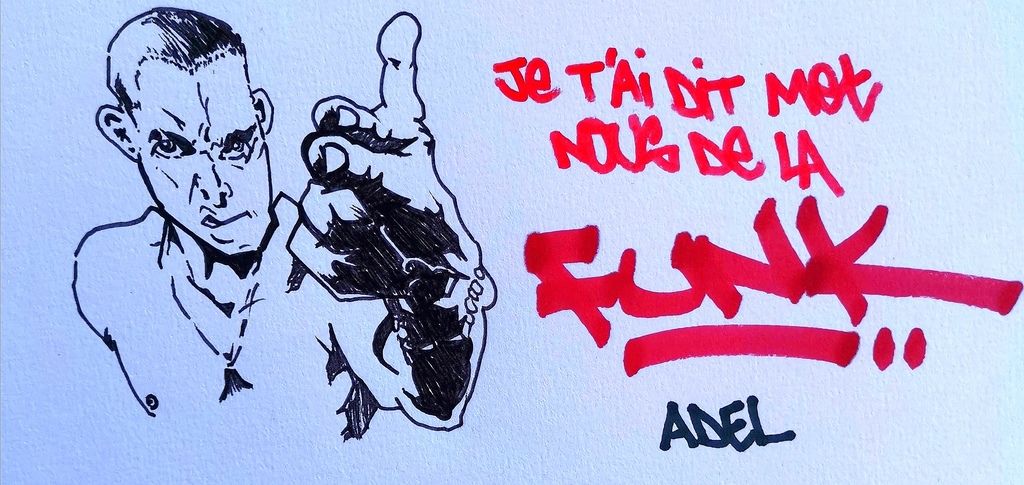 Je T'Ai DiT Met
NOUS De LA
FUNK..
ADEL